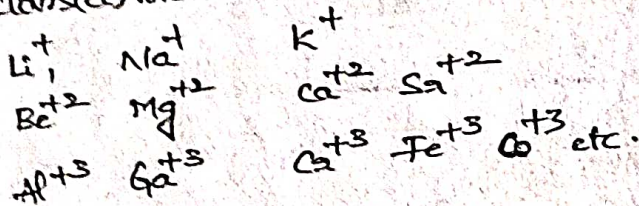 Li⁺, Na⁺ K⁺
Be⁺² Mg⁺² Ca⁺² Sr⁺²
Al⁺³ Ga⁺³ Cr⁺³ Fe⁺³ Co⁺³ etc.